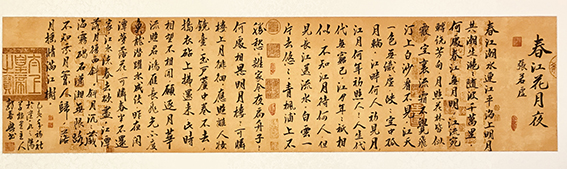 春江花月夜
張若虛
春江潮水連江平海上明月
共潮生灩灩隨波千萬里
何處春江無月明江流宛
轉繞芳甸月照花林皆似
霰空裏流霜不覺飛
汀上白沙看不見江天
一色無纖塵皎皎空中孤
月輪江畔何人初見月
江月何年初照人人生代
代無窮已江月年年祇相
似不知江月待何人但
見長江送流水白雲一
片去悠悠青楓浦上不
勝愁誰家今夜扁舟子
何處相思明月樓可憐
樓上月徘徊應照離人妝
鏡臺玉戶簾中卷不去
擣衣砧上拂還來此時
相望不相聞願逐月華
流照君鴻雁長飛光不度
魚龍潛躍水成文昨夜閑
潭夢落花可憐春半不還
家江水流春去欲盡江潭
落月復西斜斜月沉沉藏
海霧碣石瀟湘無限路
不知乘月幾人歸落
月搖情滿江樹